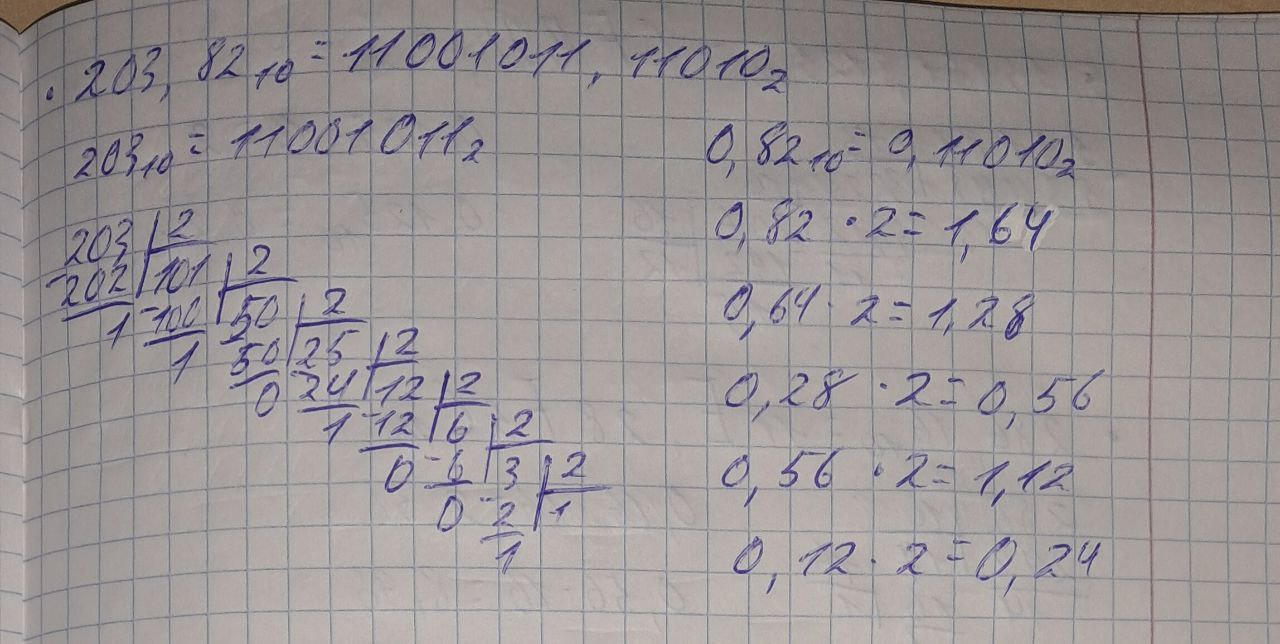 . 203,82₁₀ = 11001011,11010₂
203₁₀ = 11001011₂
203 2
- 202 101 2
1 - 100 50 2
1 - 50 25 2
0 - 24 12 2
1 - 12 6 2
0 - 6 3 2
0 - 2 1
1
0,82₁₀ = 0,11010₂
0,82 · 2 = 1,64
0,64 · 2 = 1,28
0,28 · 2 = 0,56
0,56 · 2 = 1,12
0,12 · 2 = 0,24